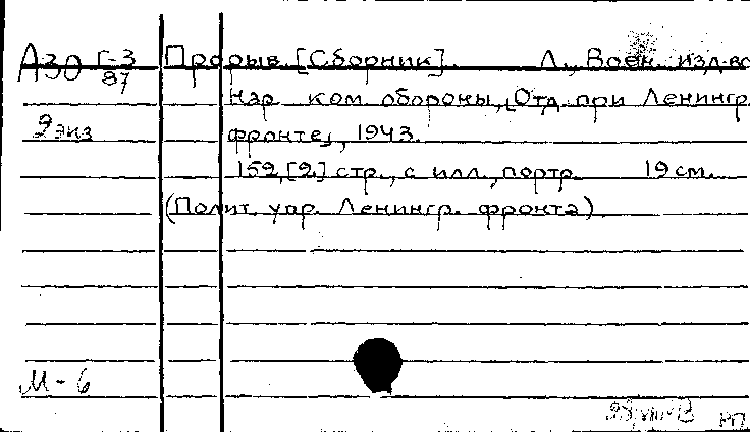 А30 Г-3 Прорыв. [Сборник]. Л., Воен. изд-во
87
Нар ком. обороны, [Отд. при Ленингр.
2 экз фронте], 1943.
152, [2] стр., с илл., портр. 19 см.
(Полит. упр. Ленингр. фронта)
М-6
РП